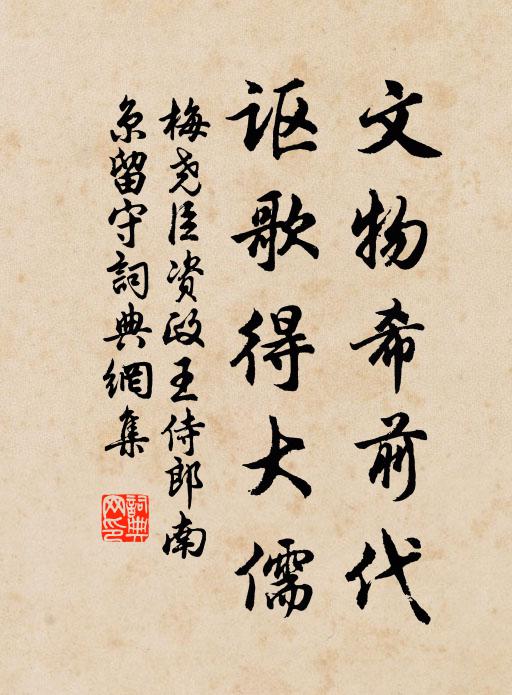 文物希前代
讴歌得大儒
梅尧臣资政王侍郎南
京留守詞典網集
詞典
网印